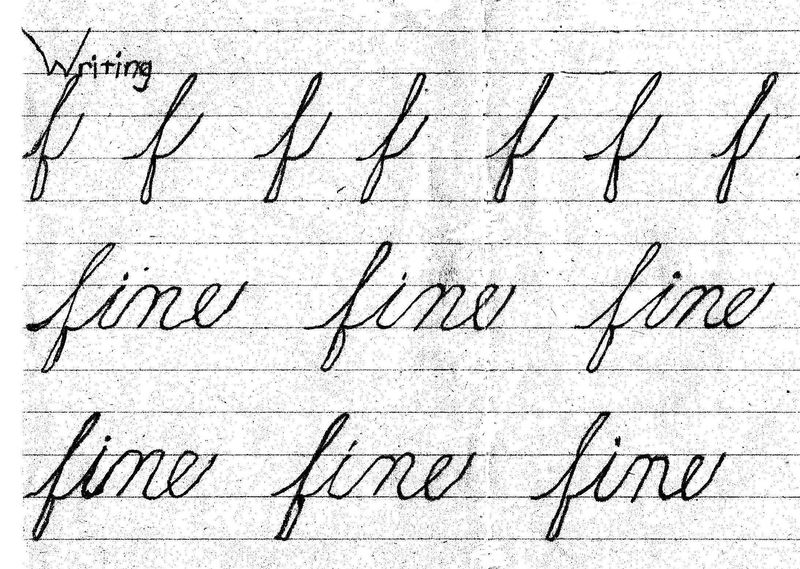 Writing
f f f f f f f
fine fine fine
fine fine fine